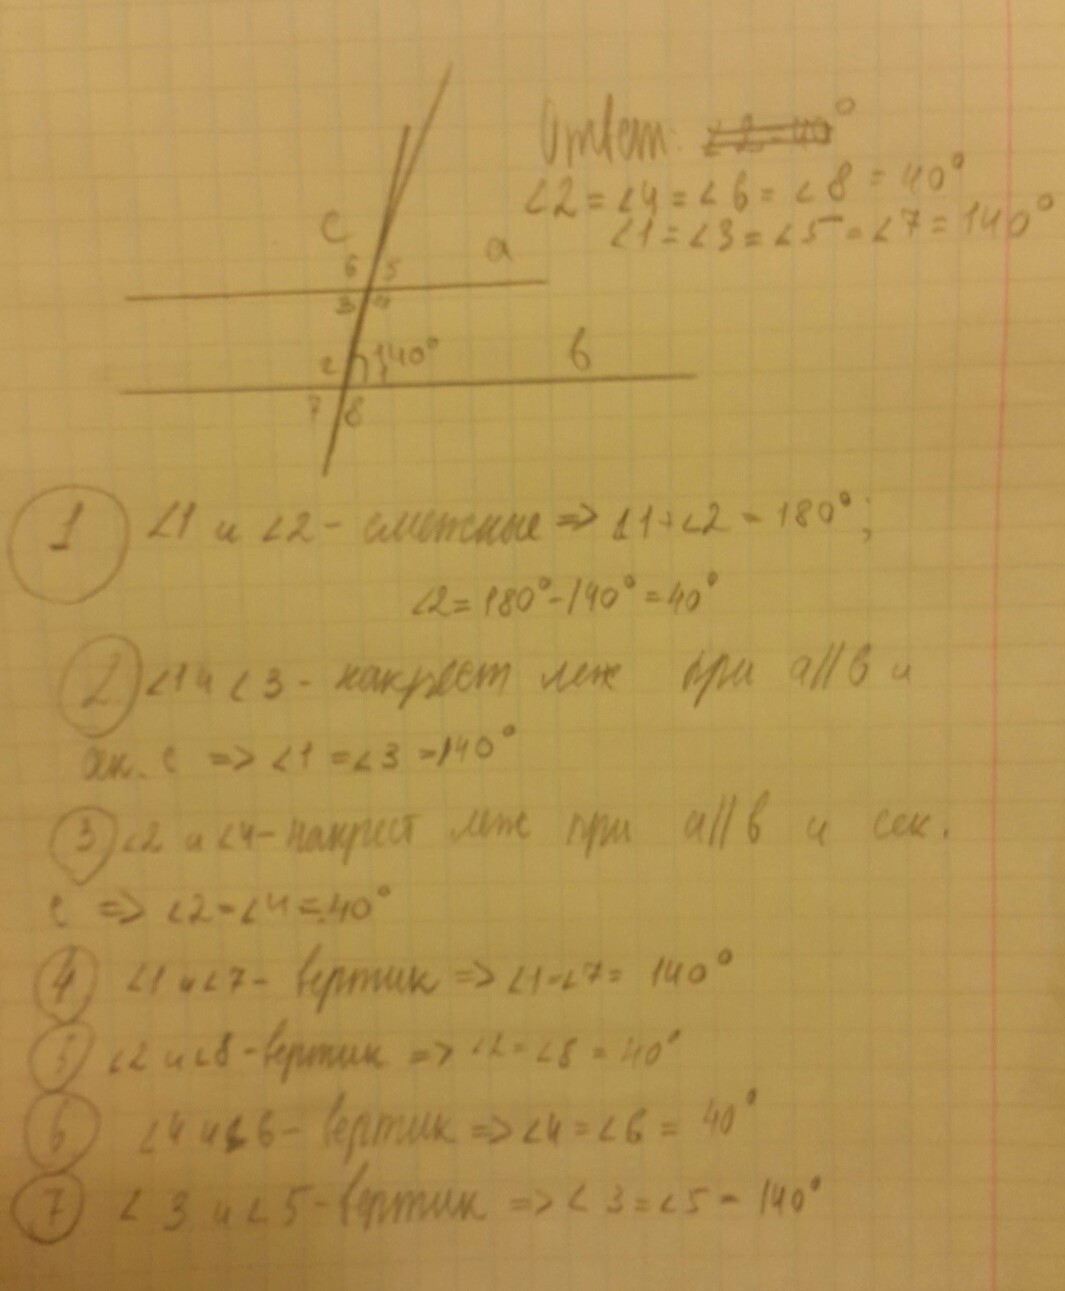 Ответ:
∠2 = ∠4 = ∠6 = ∠8 = 40°
∠1 = ∠3 = ∠5 = ∠7 = 140°
c
a
6 5
3 4
b
2 140°
7 8
1 ∠1 и ∠2 - смежные => ∠1+∠2 = 180°;
∠2 = 180° - 140° = 40°
2 ∠1 и ∠3 - накрест леж при a||b и
c => ∠1 = ∠3 = 140°
3 ∠2 и ∠4 - накрест леж при a||b и сек.
c => ∠2 = ∠4 = 40°
4 ∠1 и ∠7 - вертик => ∠1 = ∠7 = 140°
5 ∠2 и ∠8 - вертик => ∠2 = ∠8 = 40°
6 ∠4 и ∠6 - вертик => ∠4 = ∠6 = 40°
7 ∠3 и ∠5 - вертик => ∠3 = ∠5 = 140°